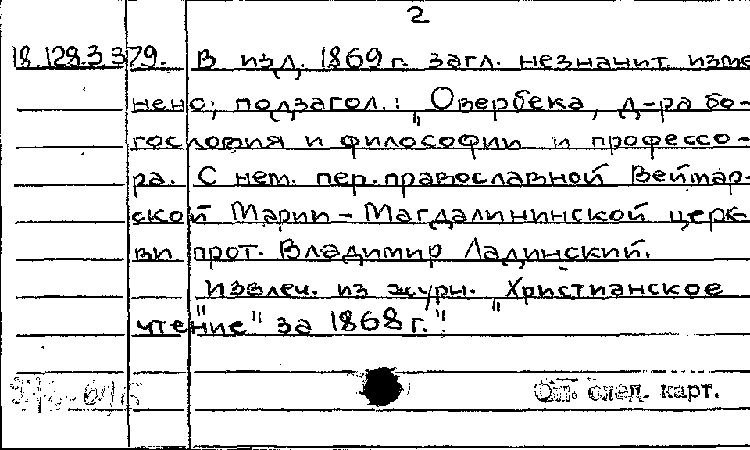 2
18.128.3.379. В изд. 1869 г. загл. незначит. изме-
нено; подзагол.: „Овербека, д-ра бо-
гословия и философии и профессо-
ра. С нем. пер. православной Веймар-
ской Марии-Магдалининской церк-
ви прот. Владимир Ладинский.
„Извлеч. из журн. „Христианское
чтение" за 1868 г."
См. след. карт.